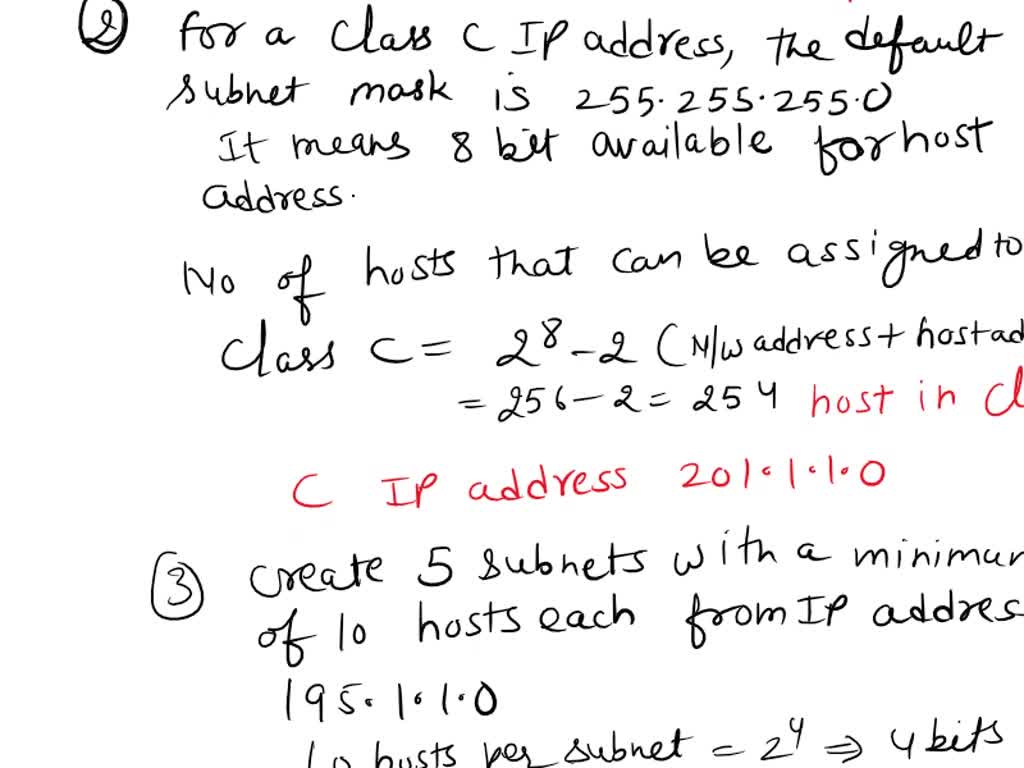 ② for a Class C IP address, the default
subnet mask is 255.255.255.0
It means 8 bit available for host
address.
No of hosts that can be assigned to
Class C = 2⁸ - 2 (N/w address + host ad
= 256 - 2 = 254 host in Cl
C IP address 201.1.1.0
③ Create 5 subnets with a minimum
of 10 hosts each from IP addres
195.1.1.0
10 hosts per subnet = 2⁴ ⇒ 4 bits